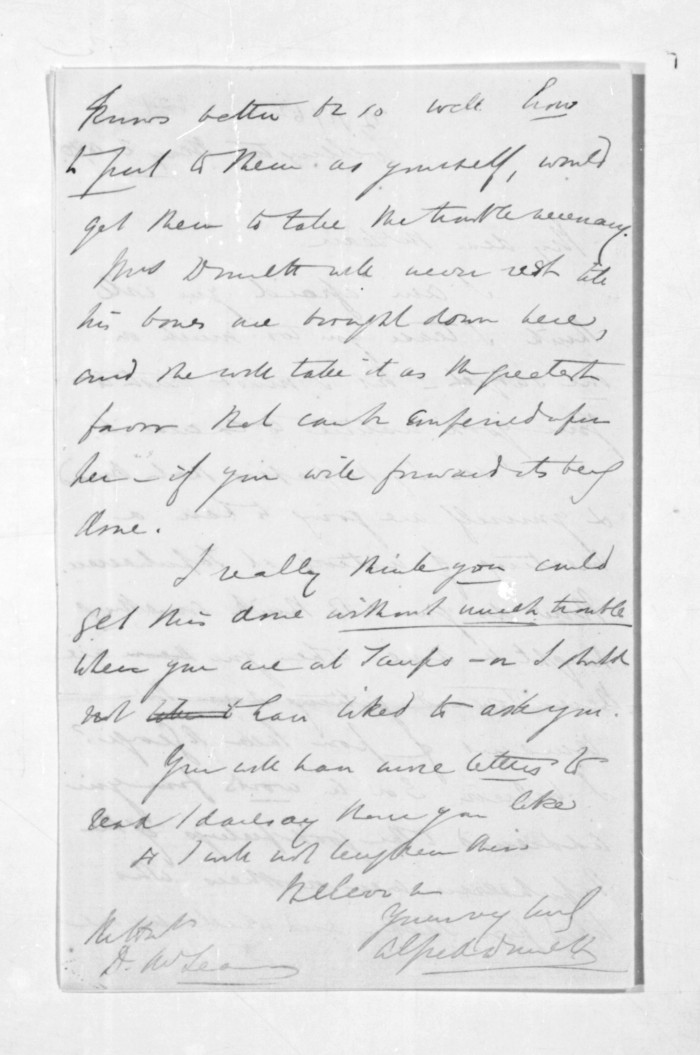 knows better or so well how
to put to them as yourself, would
get them to take the trouble necessary.
Mrs Domett will never rest till
his bones are brought down here,
and she will take it as the greatest
favor that can be conferred upon
her – if you will forward its being
done.
I really think you could
get this done without much trouble
when you are at Taupo – or I should
not have liked to ask you.
You will have more letters to
read I daresay than you like
so I will not lengthen this
Believe me
Yours very truly
Alfred Domett
The Honble
D. McLean